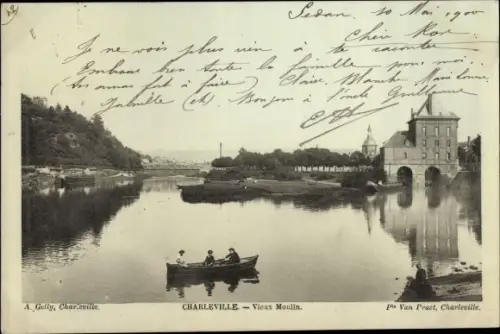 Sedan, 10 Mai, 1900
Chère Rose
Je ne vois plus rien à te raconter
Embrasse bien toute la famille pour moi.
mes amis à faire) Claire, Blanche, Marie Louise,
Mathilde &c) Bonjour à l'oncle Guillaume,
A. Gelly, Charleville.
CHARLEVILLE. — Vieux Moulin.
Pte Van Praet, Charleville.